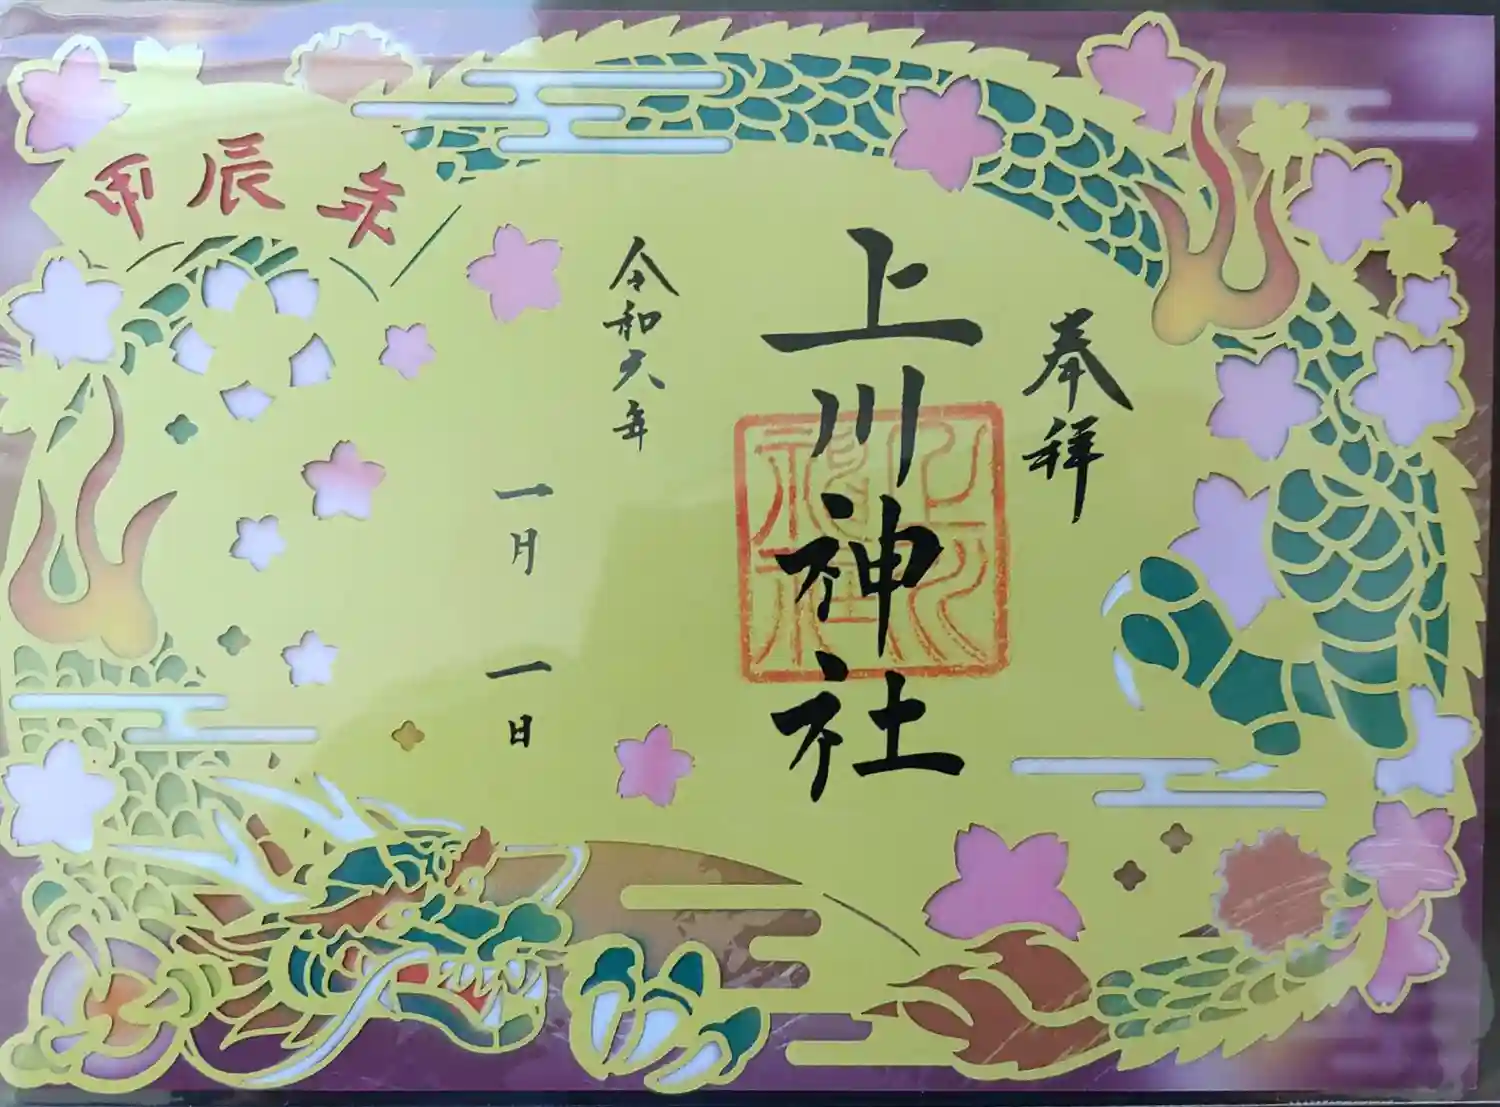 奉拝
上川神社
上川
神社
令和六年
一月
一日
甲辰